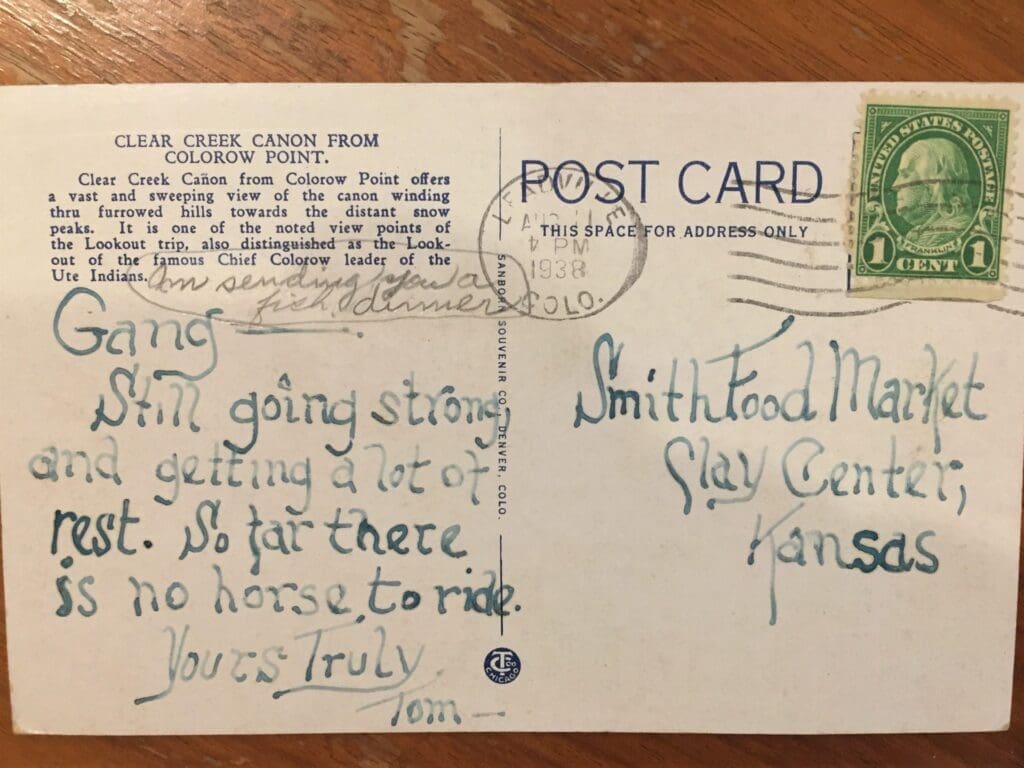 CLEAR CREEK CANON FROM
COLOROW POINT.
Clear Creek Cañon from Colorow Point offers
a vast and sweeping view of the canon winding
thru furrowed hills towards the distant snow
peaks. It is one of the noted view points of
the Lookout trip, also distinguished as the Look-
out of the famous Chief Colorow leader of the
Ute Indians.
Am sending you a
fish dinner
Gang
Still going strong,
and getting a lot of
rest. So far there
is no horse to ride.
Yours Truly
Tom —
SANBORN SOUVENIR CO., DENVER, COLO.
CT CO
CHICAGO
POST CARD
THIS SPACE FOR ADDRESS ONLY
LEADVILLE
AUG
PM
1938
COLO.
UNITED STATES POSTAGE
FRANKLIN
1 CENT 1
Smith Food Market
Clay Center,
Kansas